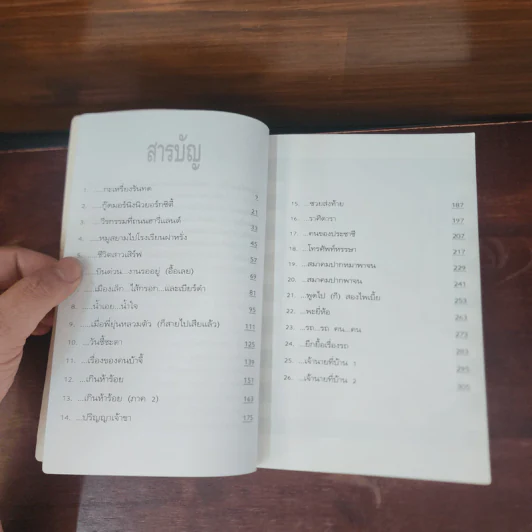 สารบัญ
1. ...กะเหรี่ยงรันทด
2. ...กู๊ดมอร์นิงนิวยอร์กซิตี้ 21
3. ...วีรกรรมที่ถนนฮาวีแลนด์ 33
4. ...หมูสยามไปโรงเรียนฝาหรั่ง 45
...ชีวิตสาวเสิร์ฟ 57
...บินด่วน...งานรออยู่ (อื้อเลย) 69
...เมืองเล็ก...ไส้กรอก...และเบียร์ดำ 81
8. ...น้ำเอย...น้ำใจ 95
9. ...เมื่อพี่ยุ่นหลวมตัว (ก็สายไปเสียแล้ว) 111
10. ...วันซี้ซะตา 125
11. ...เรื่องของคนบ้าจี้ 139
12. ...เกินห้าร้อย 151
13. ...เกินห้าร้อย (ภาค 2) 163
14. ...ปริญญาเจ้าขา 175
15. ...ชวนส่งท้าย 187
16. ...ราศีดารา 197
17. ...คนของประชาชี 207
18. ...โทรศัพท์หรรษา 217
19. ...สมาคมปากหมาพาจน 229
20. ...สมาคมปากหมาพาจน 241
21. ...พูดไป (ก็) สองไพเบี้ย 253
22. ...พะยี่ห้อ 263
23. ...รถ...รถ คน...คน 273
24. ...ยึกยื้อเรื่องรถ 283
25. ...เจ้านายที่บ้าน 1 295
26. ...เจ้านายที่บ้าน 2 305